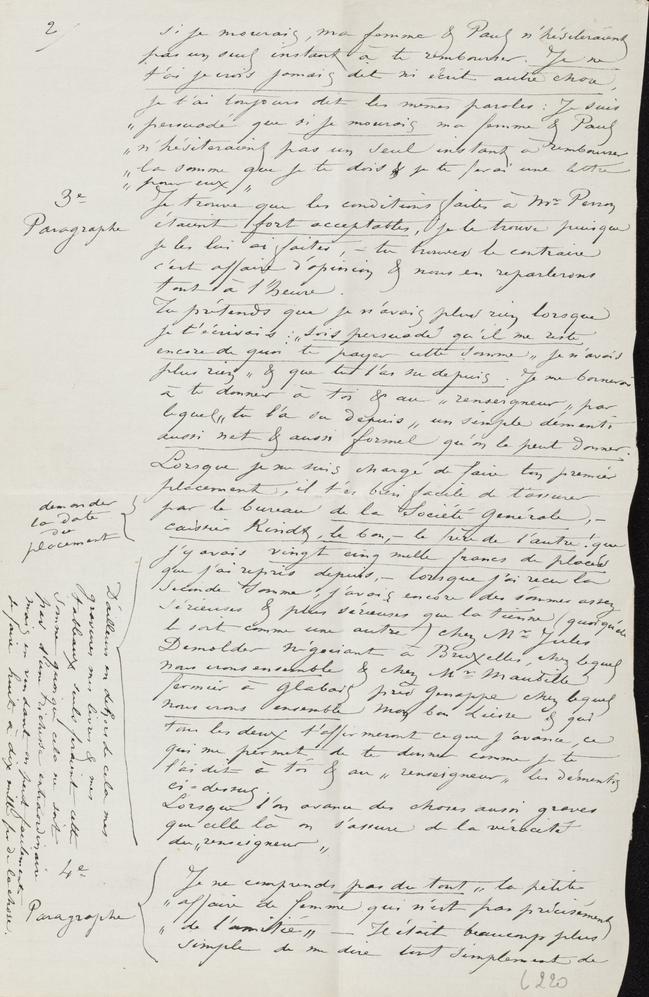 2/
si je mourais, ma femme & Paul n'hésiteraient
pas un seul instant à te rembourser. Je ne
t'ai je crois jamais dit ni écrit autre chose,
je t'ai toujours dit les mêmes paroles : Je suis
„ persuadé que si je mourais ma femme & Paul
„ n'hésiteraient pas un seul instant à rembourser
„ la somme que je te dois & je te ferai une lettre
„ pour eux „
3e
Paragraphe
Je trouve que les conditions faites à Mr Perron
étaient fort acceptables, je le trouve puisque
je les lui ai faites, – tu trouves le contraire
c'est affaire d'opinion & nous en reparlerons
tout à l'heure.
Tu prétends que je n'avais plus rien lorsque
je t'écrivais : „ sois persuadé qu'il me reste
encore de quoi te payer cette somme „ je n'avais
plus rien „ & que tu l'as su depuis. Je me bornerai
à te donner à toi & au „ renseigneur „ par
lequel „ tu l'a su depuis „ un simple démenti
aussi net & aussi formel qu'on le peut donner.
Lorsque je me suis chargé de faire ton premier
placement, il t'es bien facile de t'assurer
par le bureau de la Société Générale, –
caissier Kindt, le bon, – le frère de l'autre ! que
j'y avais vingt cinq mille francs de placés
que j'ai repris depuis, – lorsque j'ai recu la
seconde somme, j'avais encore des sommes assez
sérieuses & plus sérieuses que la tienne (quoiqu'elle
le soit comme une autre) chez Mr Jules
Demolder négociant à Bruxelles, chez lequel
nous irons ensemble & chez Mr
fermier à Glabais près Genappe chez lequel
nous irons ensemble mon bon Liesse & qui
tous les deux t'affirmeront ce que j'avance, ce
qui me permet de te donner comme je te
l'ai dit à toi & au „ renseigneur „ les démentis
ci-dessus.
Lorsque l'on avance des choses aussi graves
que celle là on s'assure de la véracité
du „ renseigneur „
demander
la date
du
placement
D'ailleurs en dehors de cela mes
gravures mes livres & mes
tableaux seuls feraient cette
somme quoique cela ne soit
pas d'une richesse extraordinaire
mais en vendant on peut parfaitement
se faire huit à dix mille fr de la chose.
4e
Paragraphe
Je ne comprends pas du tout „ la petite
„ affaire de femme qui n'est pas précisément
„ de l'amitié „ – Il était beaucoup plus
simple de me dire tout simplement de
6220